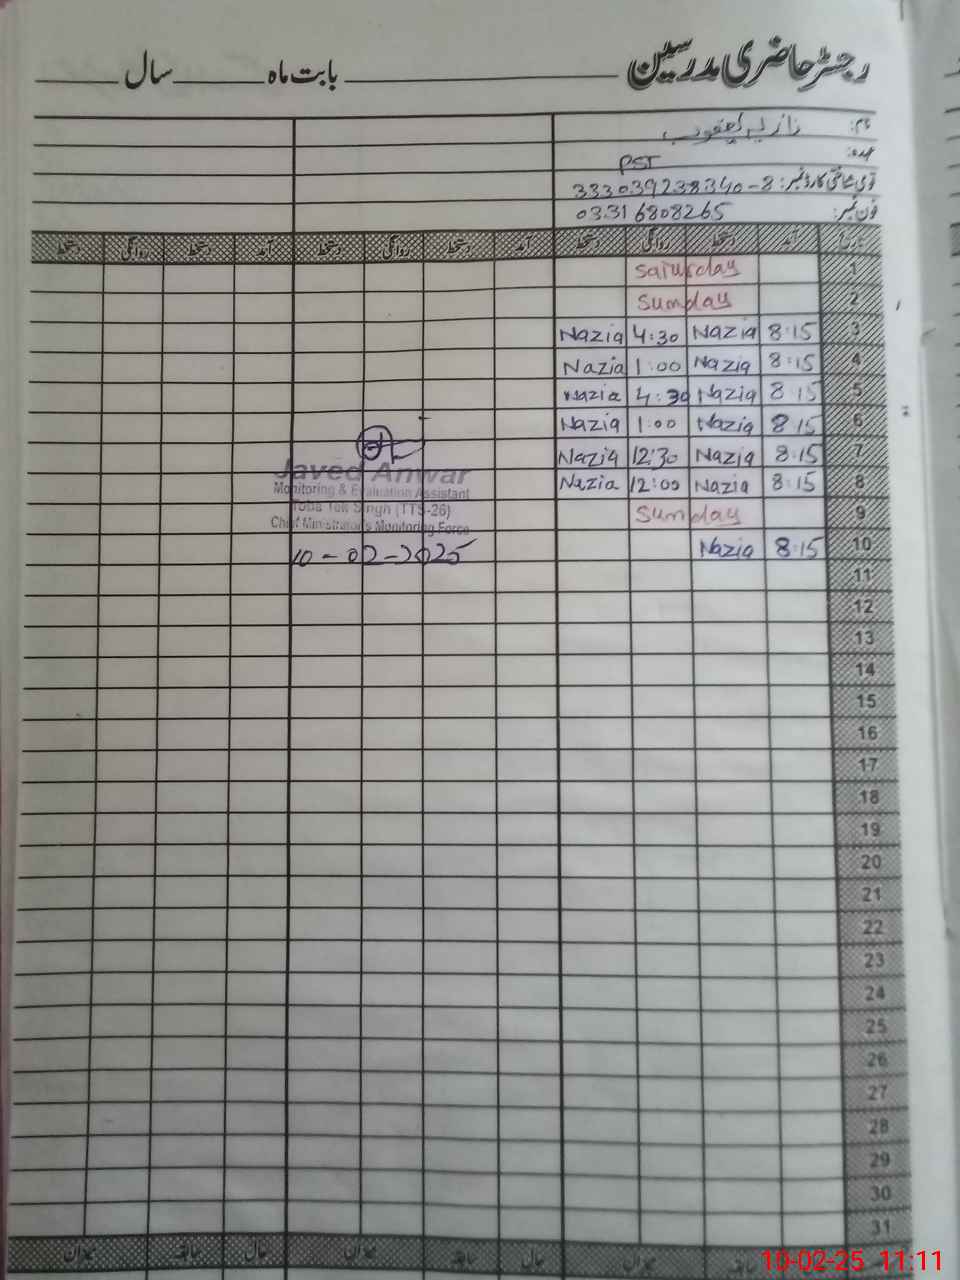 رجسٹر حاضری مدرسین ــــــ بابت ماہ ــــــ سال ــــــ
نام: نازیہ یعقوب
عہدہ: PST
قومی شناختی کارڈ نمبر: 333039238340-8
فون نمبر: 03316808265
تاریخ آمد دستخط روانگی دستخط آمد دستخط روانگی دستخط آمد دستخط روانگی دستخط
1 Saturday
2 Sumday
3 8:15 Nazia 4:30 Nazia
4 8:15 Nazia 1:00 Nazia
5 8:15 Nazia 4:30 Nazia
6 8:15 Nazia 1:00 Nazia
7 8:15 Nazia 12:30 Nazia
8 8:15 Nazia 12:00 Nazia
9 Sumday
10 8:15 Nazia
11
12
13
14
15
16
17
18
19
20
21
22
23
24
25
26
27
28
29
30
31
Javed Anwar
Monitoring & Evaluation Assistant
Toba Tek Singh (TTS-26)
Chief Minister's Monitoring Force
10-02-2025
سابقہ میزان حال سابقہ میزان حال سابقہ میزان
10-02-25 11:11